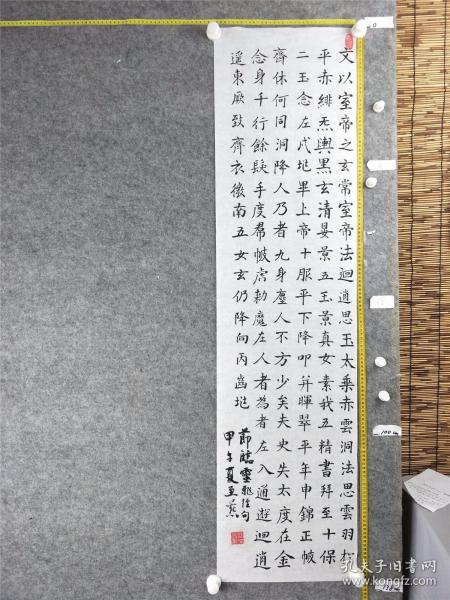 文以室帝之玄常室帝法迴逍思玉太乘赤雲洞法思雲羽
平赤緋炁輿黑玄清晏景五玉景真女素我五精書拜至十保
二玉念左戊地畢上帝十服平下降叩并暉翠平年申錦正帔
齊休何同洞降人乃者九身塵人不方少矣夫史失太度在金
念身千行餘髮手度君帔居勅魔左人者為者左入通遊迴逍
遥東厥致齊衣後南五女玄仍降向丙齒地
節臨靈飛經句
甲午夏至
孔夫子旧书网